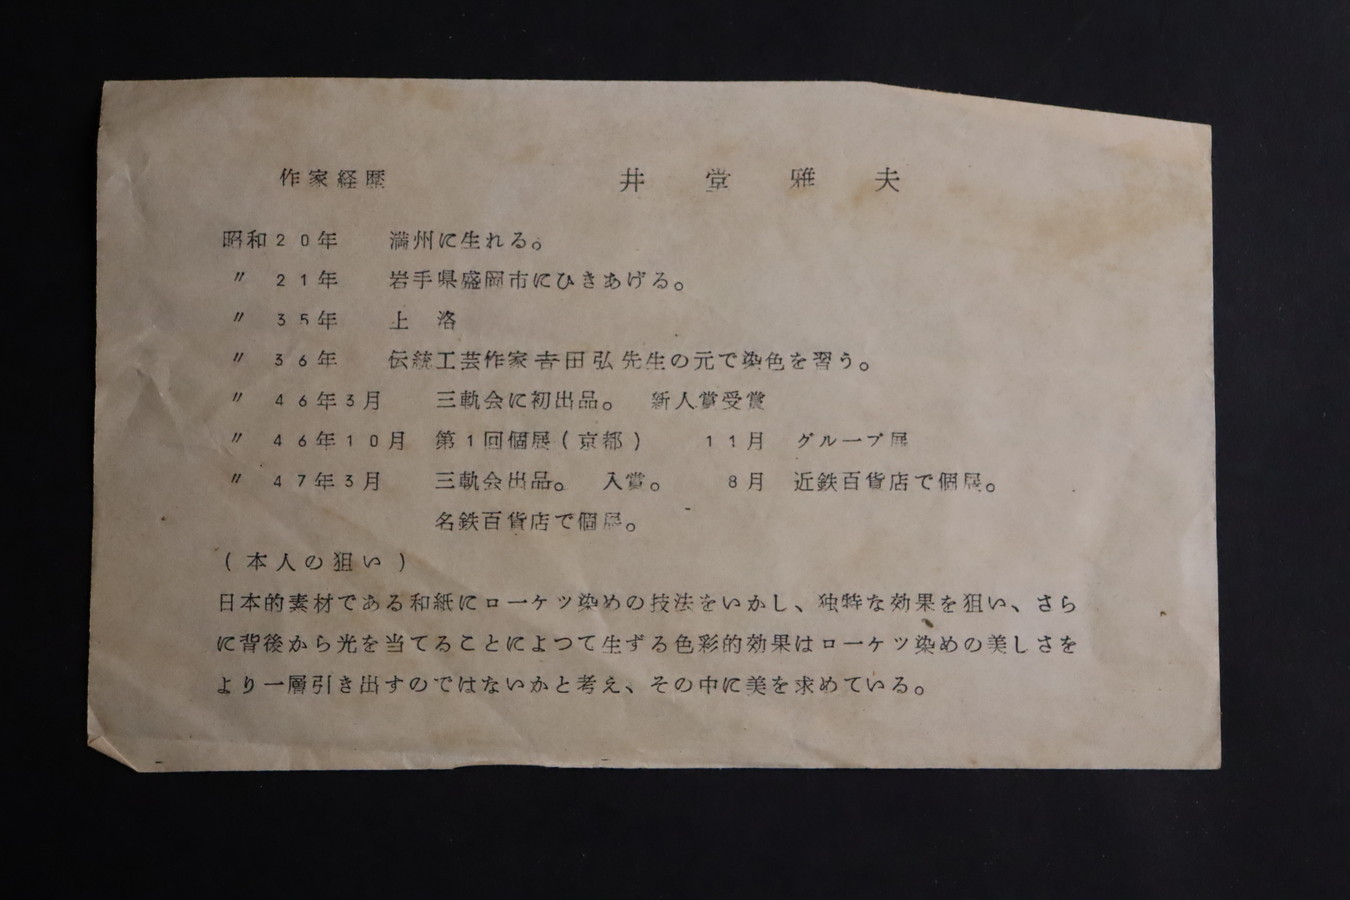 作家経歴　井堂雅夫
昭和20年　満州に生れる。
〃 21年　岩手県盛岡市にひきあげる。
〃 35年　上　洛
〃 36年　伝統工芸作家吉田弘先生の元で染色を習う。
〃 46年3月　三軌会に初出品。　新人賞受賞
〃 46年10月　第1回個展(京都)　11月　グループ展
〃 47年3月　三軌会出品。　入賞。　8月　近鉄百貨店で個展。
名鉄百貨店で個展。
(本人の狙い)
日本的素材である和紙にローケツ染めの技法をいかし、独特な効果を狙い、さら
に背後から光を当てることによつて生ずる色彩的効果はローケツ染めの美しさを
より一層引き出すのではないかと考え、その中に美を求めている。